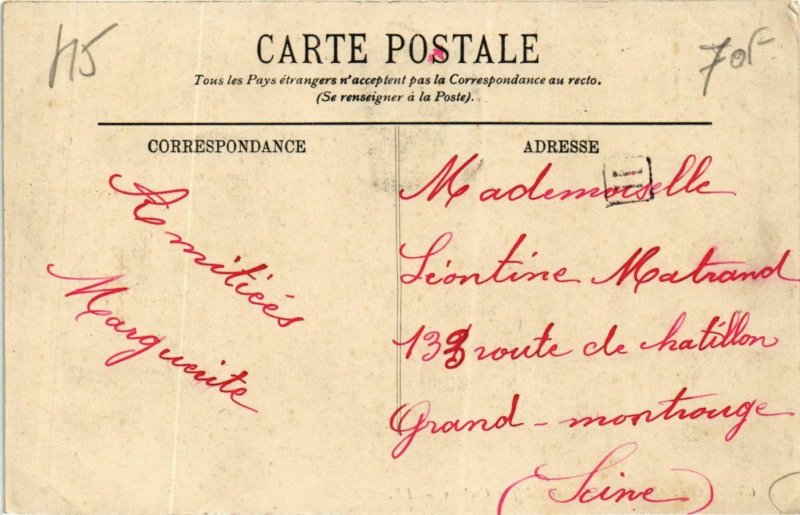 115
70F
CARTE POSTALE
Tous les Pays étrangers n'acceptent pas la Correspondance au recto.
(Se renseigner à la Poste).
CORRESPONDANCE
Amitiées
Marguerite
ADRESSE
Mademoiselle
Léontine Matrand
route de chatillon
Grand-montrouge
(Seine)